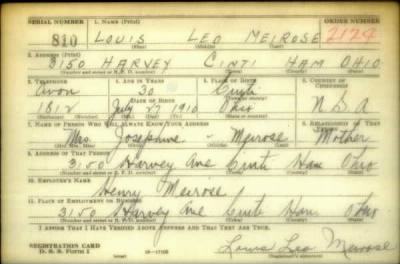 SERIAL NUMBER 1. NAME (Print) ORDER NUMBER
810 LOUIS LEO MEIROSE 2124
(First) (Middle) (Last)
2. ADDRESS (Print)
3150 HARVEY CINTI HAM OHIO
(Number and street or R. F. D. number) (Town) (County) (State)
3. TELEPHONE 4. AGE IN YEARS 5. PLACE OF BIRTH 6. COUNTRY OF CITIZENSHIP
Avon 30 Cinti
DATE OF BIRTH (Town or county)
1812 July 27 1910 Ohio
(Exchange) (Number) (Mo.) (Day) (Yr.) (State or country)
7. NAME OF PERSON WHO WILL ALWAYS KNOW YOUR ADDRESS 8. RELATIONSHIP OF THAT PERSON
Mrs. Josephine - Meirose Mother
(Mr., Mrs., Miss) (First) (Middle) (Last)
9. ADDRESS OF THAT PERSON
3150 Harvey Ave Cinti Ham Ohio
(Number and street or R. F. D. number) (Town) (County) (State)
10. EMPLOYER'S NAME
Henry Meirose
11. PLACE OF EMPLOYMENT OR BUSINESS
3150 Harvey Ave Cinti Ham. Ohio
(Number and street or R. F. D. number) (Town) (County) (State)
I AFFIRM THAT I HAVE VERIFIED ABOVE ANSWERS AND THAT THEY ARE TRUE.
REGISTRATION CARD
D. S. S. Form 1 Louis Leo Meirose
(Registrant's signature)